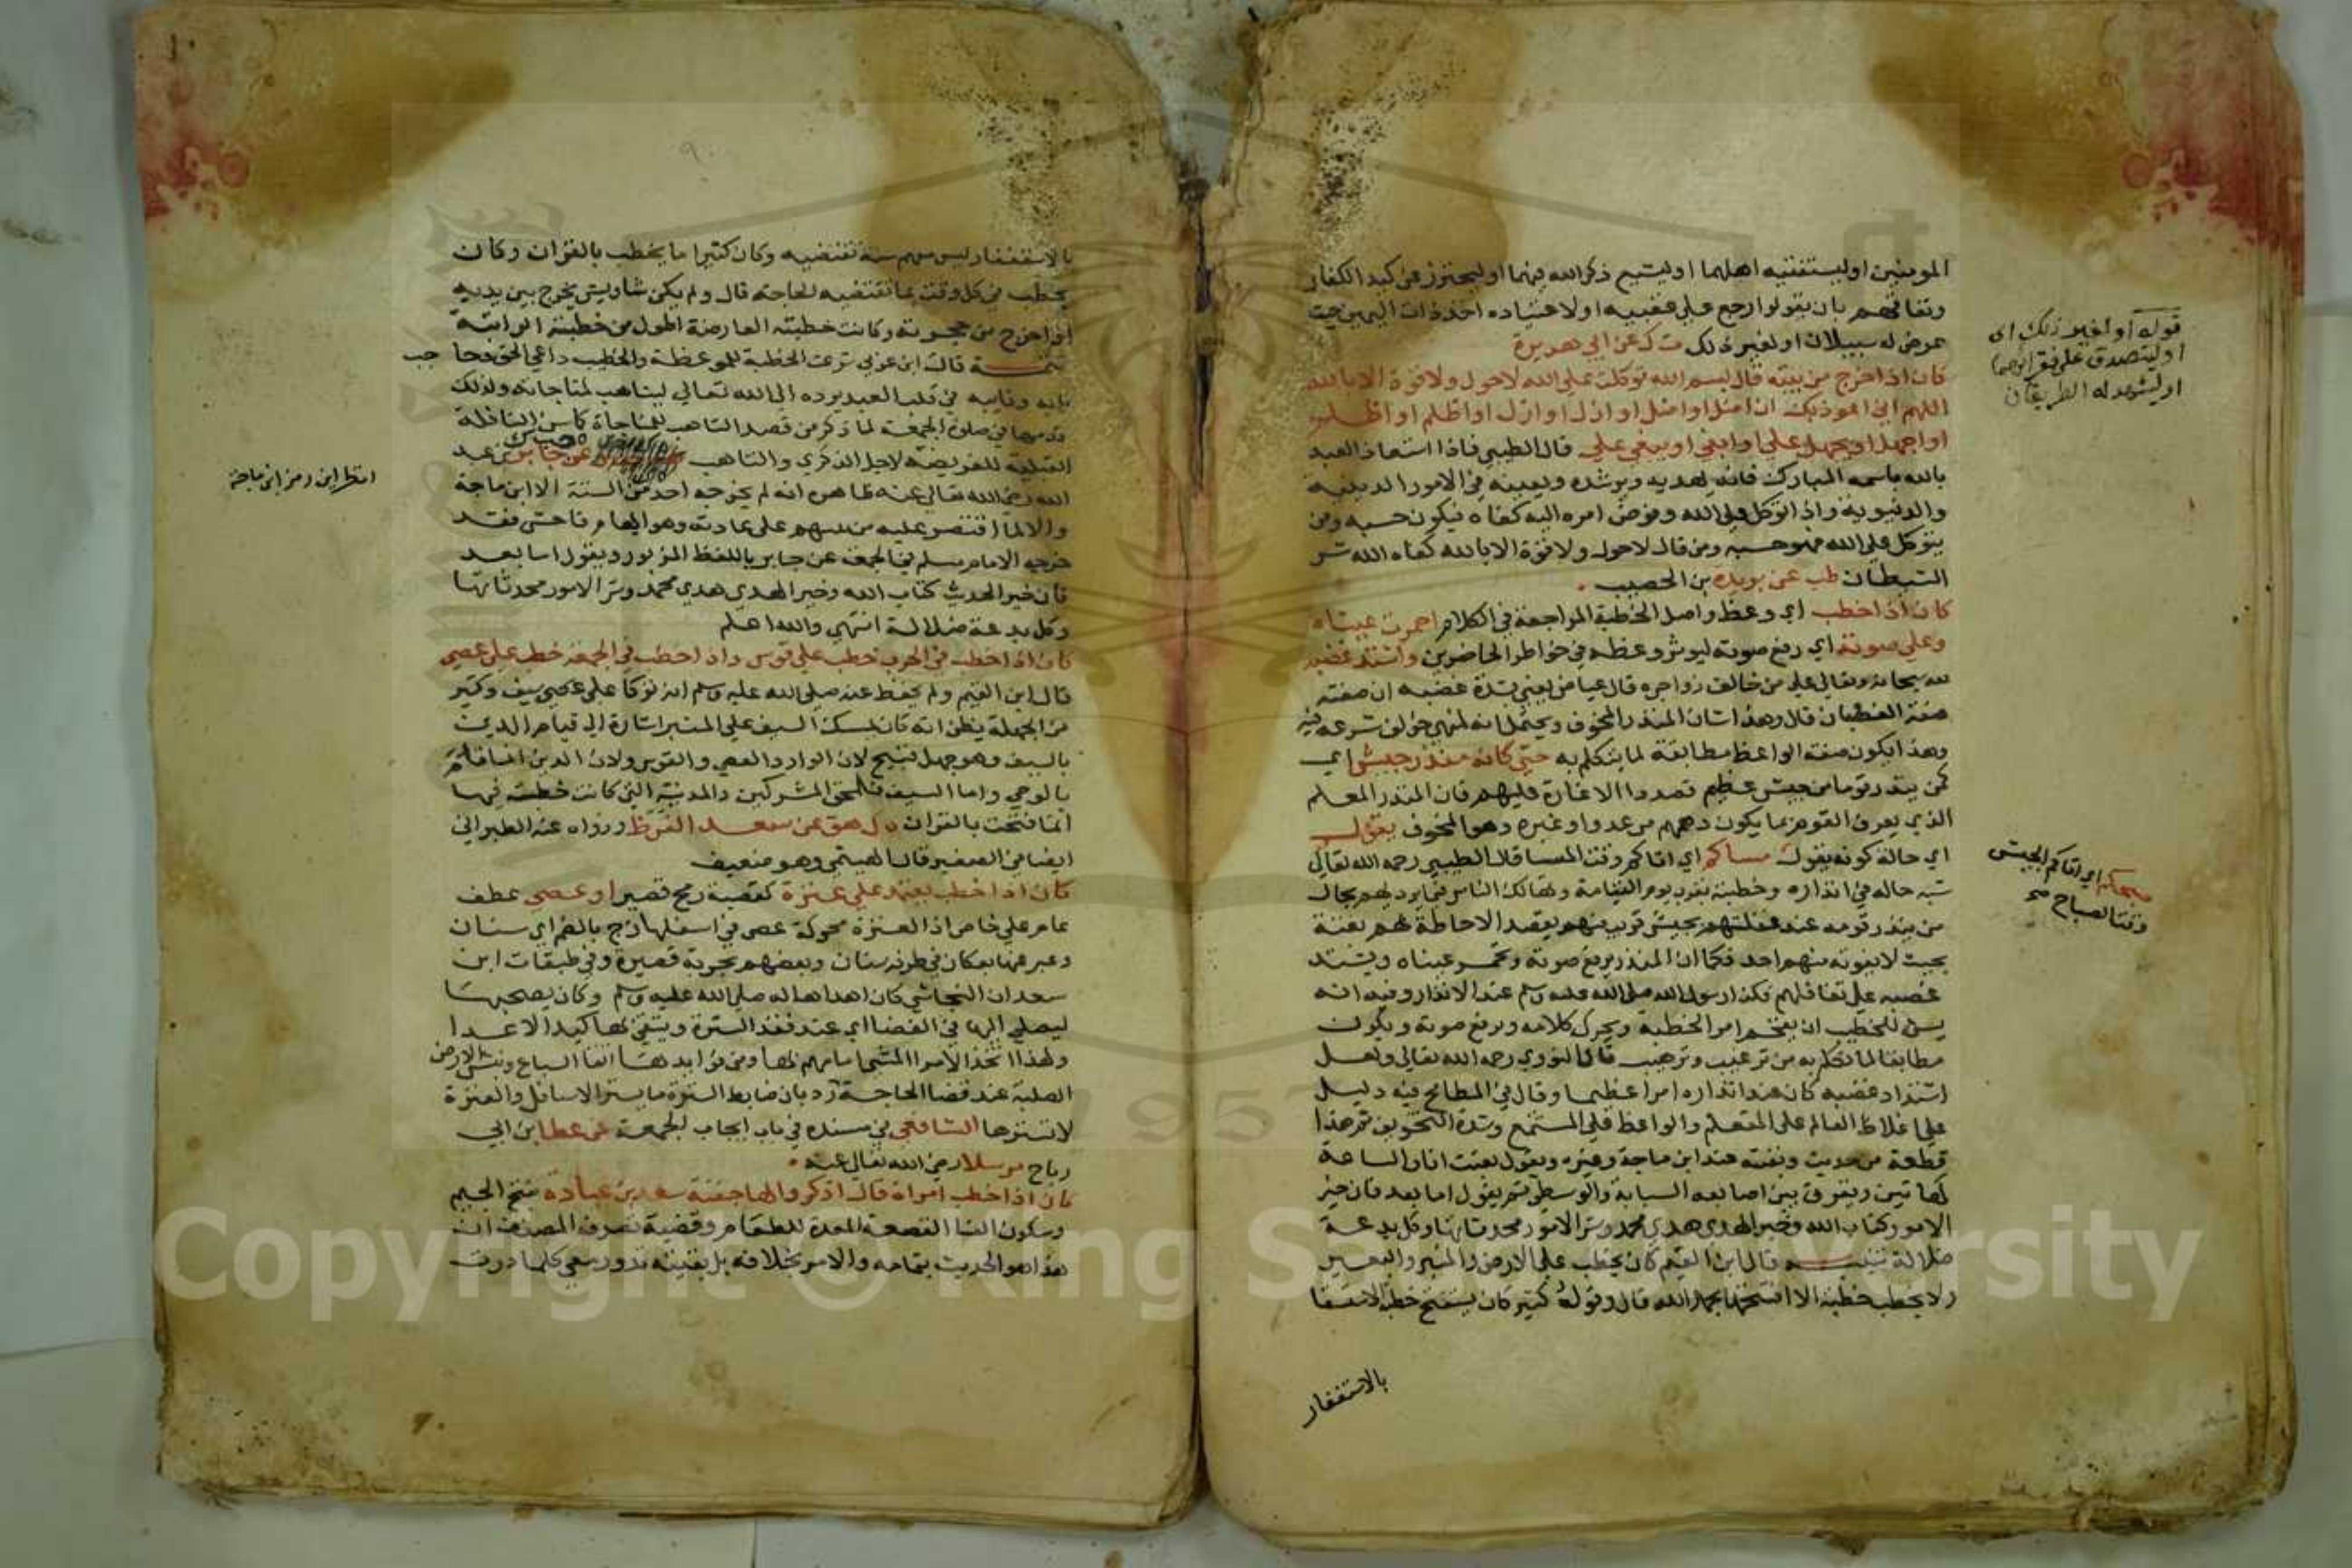 المومنين اوليستفتيه اهلهما اوليشيع ذكر الله فيهما اوليحترز عن كيد الكفار
وتفاقهم بان يقولوا رجع على عقبيه او لاعتياده اخذ ذات اليمين حيث
عرض له سبيلان او لغير ذلك ت ك عن ابي هريرة
كان اذا خرج من بيته قال بسم الله توكلت على الله لاحول ولا قوة الا بالله
اللهم اني اعوذ بك ان اضل او اضل او ازل او ازل او اظلم او اظلم
او اجهل او يجهل علي او ابغي او يبغى علي قال الطيبي فاذا استعاذ العبد
بالله باسمه المبارك فانه يهديه ويرشده ويعينه في الامور الدينية
والدنيوية واذا توكل على الله وفوض امره اليه كفاه فيكون حسبه ومن
يتوكل على الله فهو حسبه ومن قال لاحول ولا قوة الا بالله كفاه الله شر
الشيطان طب عن بريدة بن الحصيب
كان اذا خطب اي وعظ واصل الخطبة المراجعة في الكلام احمرت عيناه
وعلى صوته اي رفع صوته ليوثر وعظه في خواطر الحاضرين واشتد غضبه
لله سبحانه وتعالى على من خالف زواجره قال عياض يعني بشدة غضبه ان صفته
صفة الغضبان قال وهذا شان المنذر المخوف ويحتمل انه لنهي خولف شرعه فيه
وهذا يكون صفة الواعظ مطابقة لما يتكلم به حتى كانه منذر جيش اي
كمن ينذر قوما من جيش عظيم قصدوا الاغارة عليهم فان المنذر المعلم
الذي يعرف القوم بما يكون دهمهم من عدو او غيره وهو المخوف يقول
اي حالة كونه يقول مساكم اي اتاكم وقت المسا قال الطيبي رحمه الله تعالى
شبه حاله في انذاره وخطبته بقرب يوم القيامة وتهالك الناس فيما يرديهم بحال
من ينذر قومه عند غفلتهم بجيش قريب منهم يقصد الاحاطة بهم بغتة
بحيث لا يفوته منهم احد فكما ان المنذر يرفع صوته وتحمر عيناه ويشتد
غضبه على تغافلهم فكذا رسول الله صلى الله عليه وسلم عند الانذار وفيه انه
يسن للخطيب ان يفخم امر الخطبة ويجزل كلامه ويرفع صوته ويكون
مطابقا لما تكلم به من ترغيب وترهيب قال النووي رحمه الله تعالى ولعل
اشتداد غضبه كان عند انذاره امرا عظيما وقال في المطامح فيه دليل
على اغلاظ العالم على المتعلم والواعظ على المستمع وشدة التخويف ثم هذا
قطعة من حديث وبقيته عند ابن ماجة وغيره ويقول بعثت انا والساعة
كهاتين ويفرق بين اصابعه السبابة والوسطى ثم يقول اما بعد فان خير
الامور كتاب الله وخير الهدي هدي محمد وشر الامور محدثاتها وكل بدعة
ضلالة تنبيه قال ابن القيم كان يخطب على الارض والمنبر والبعير
ولا يخطب خطبة الا افتتحها بحمد الله قال وقول كثير كان يستفتح خطبة الاستسقا
بالاستغفار
قوله او لغير ذلك اى
او ليتصدق على فقرائهما
او ليشهد له الطريقان
صبحكم اي اتاكم الجيش
وقت الصباح صح
بالاستغفار ليس معهم سنة تقتضيه وكان كثيرا ما يخطب بالقران وكان
يخطب في كل وقت بما تقتضيه الحاجة قال ولم يكن شاويش يخرج بين يديه
اذا خرج من حجرته وكانت خطبته العارضة اطول من خطبته الراتبة
تتمـة قال ابن عربي شرعت الخطبة للموعظة والخطيب داعي الحق وحاجب
بابه ونايبه في قلب العبد يرده الى الله تعالى ليتاهب لمناجاته ولذلك
قدمها في صلوة الجمعة لما ذكر من قصد التاهب للمناجاة كما سن النافلة
القبلية للفريضة لاجل الذكرى والتاهب ه حب ك عن جابر بن عبد
الله رضي الله تعالى عنه ظاهره انه لم يخرجه احد من الستة الا ابن ماجة
والا لما اقتصر عليه من بينهم على عادته وهو ايهام فاحش فقد
خرجه الامام مسلم في الجمعة عن جابر باللفظ المزبور ويقول اما بعد
فان خير الحديث كتاب الله وخير الهدي هدي محمد وشر الامور محدثاتها
وكل بدعة ضلالة انتهي والله اعلم
كان اذا خطب في الحرب خطب على قوس واذا خطب في الجمعة خطب على عصى
قال ابن القيم ولم يحفظ عنه صلى الله عليه وسلم انه توكا على عصي سيف وكثير
من الجهلة يظن انه كان يمسك السيف على المنبر اشارة الى قيام الدين
بالسيف وهو جهل قبيح لان الوارد العصى والقوس ولان الدين انما قام
بالوحي واما السيف فلمحق المشركين والمدينة التي كانت خطبته فيها
انما فتحت بالقران ه ك هق عن سعد القرظ ورواه عنه الطبراني
ايضا في الصغير قال الهيتمي وهو ضعيف
كان اذا خطب يعتمد على عنزة كقصبة رمح قصير او عصى عطف
عام على خاص اذ العنزة محركة عصى في اسفلها زج بالضم اي سنان
وعبر عنها بعكاز في طرفه سنان وبعضهم بحربة قصيرة وفي طبقات ابن
سعد ان النجاشي كان اهداها له صلى الله عليه وسلم وكان يصحبها
ليصلي اليها في الفضا اي عند فقد السترة ويتقي بها كيد الاعدا
ولهذا اتخذ الامرا المشي امامهم بها ومن فوايدها اتقا السباع ونبش الارض
الصلبة عند قضا الحاجة رد بان ضابط السترة ما يستر الاسافل والعنزة
لا تسترها الشافعي في مسنده في باب ايجاب الجمعة عن عطا بن ابي
رباح مرسلا رضي الله تعالى عنه
كان اذا خطب امراة قال اذكروا لها جفنة سعد بن عبادة بفتح الجيم
وسكون الفا القصعة المعدة للطعام وقضية تصرف المصنف ان
هذا هو الحديث بتمامه والامر بخلافه بل بقيته تدور معي كلما درت
انظر اين رمز ابن ماجة
٩٠
١٠
Copyright © King Saud University
1957